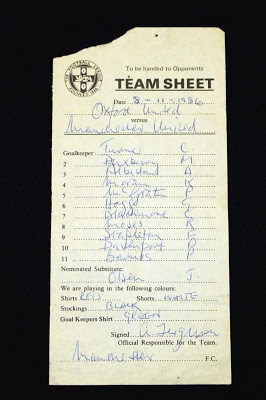 To be handed to Opponents
THE FOOTBALL LEAGUE
TEAM SHEET
Date 8-11-1986
Oxford United
versus
Manchester United
Goalkeeper Turner C
2 Duxbury M
3 Albiston A
4 Moran K
5 McGrath P
6 Hogg G
7 Blackmore C
8 Moses R
9 Stapleton F
10 Davenport P
11 Barnes P
Nominated Substitute:
Olsen J.
We are playing in the following colours:
Shirts RED Shorts WHITE
Stockings BLACK
Goal Keepers Shirt GREEN
Signed A Ferguson
Official Responsible for the Team.
Manchester F.C.